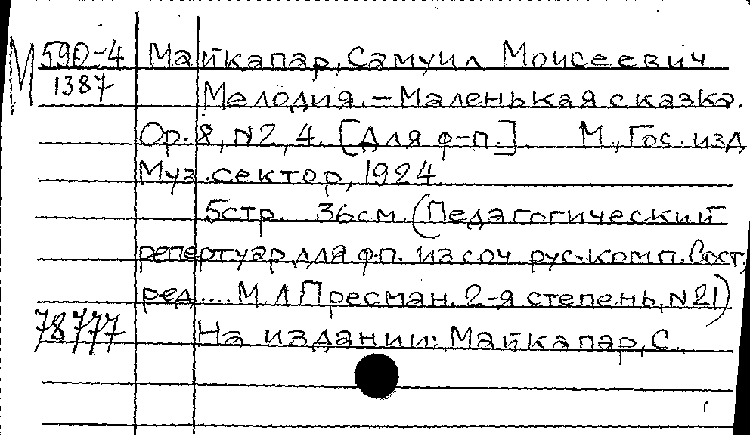 М 590-4 Майкапар, Самуил Моисеевич
1387 Мелодия. – Маленькая сказка.
Ор. 8, N2, 4. [Для ф-п.]. М., Гос. изд
Муз. сектор, 1924.
5стр. 36см. (Педагогический
репертуар для ф.п. из соч. рус. комп. Сост.,
ред. ... М. Л Пресман. 2-я степень, N21)
78777 На издании: Майкапар, С.